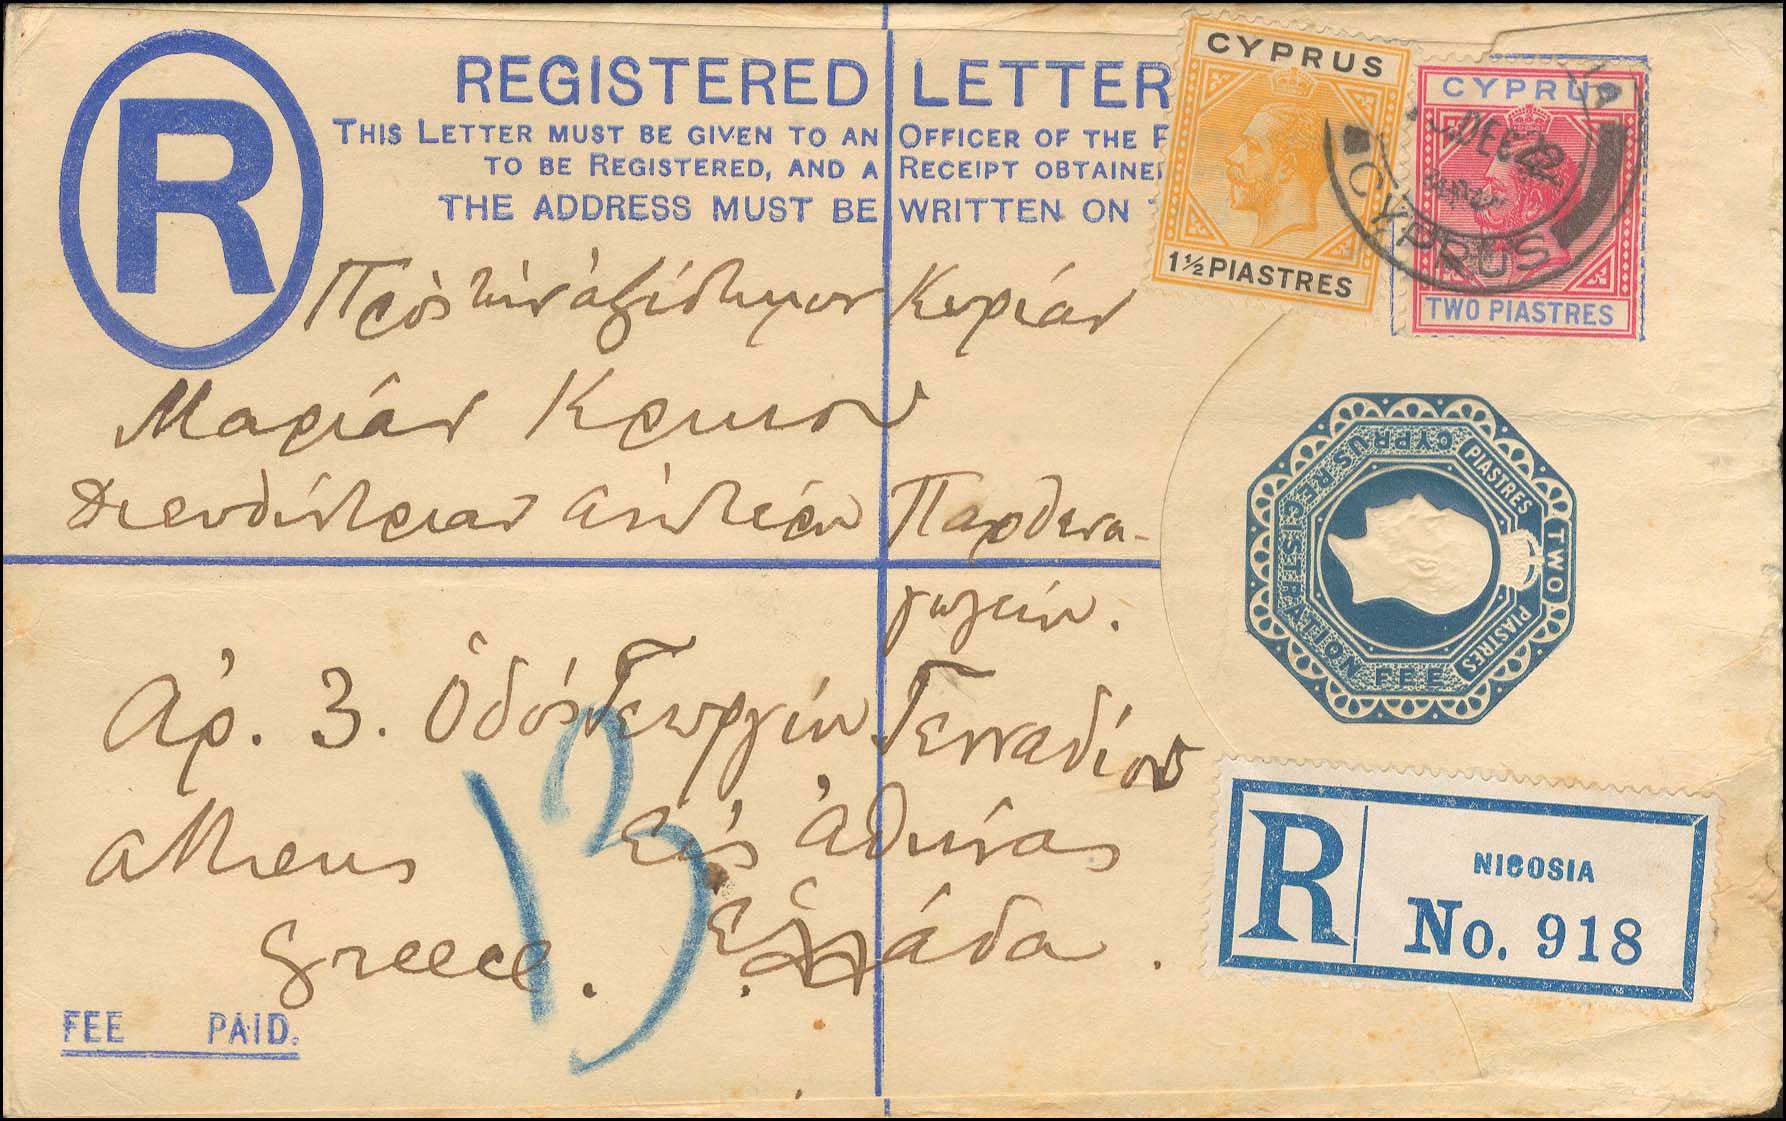 R
REGISTERED LETTER
THIS LETTER MUST BE GIVEN TO AN OFFICER OF THE P
TO BE REGISTERED, AND A RECEIPT OBTAINE
THE ADDRESS MUST BE WRITTEN ON
CYPRUS
1½ PIASTRES
CYPRUS
TWO PIASTRES
DEC 22
CYPRUS
Πρὸς τὴν ἀξιότιμον Κυρίαν
Μαρίαν
Διευθύντριαν ἀνωτέρου Παρθενα-
γωγείου.
Ἀρ. 3. Ὁδὸς Γεωργίου Γενναδίου
Athens Εἰς Ἀθήνας
Greece. Ἑλλάδα.
13
CYPRUS REGISTRATION FEE
PIASTRES TWO PIASTRES
R
NICOSIA
No. 918
FEE PAID.